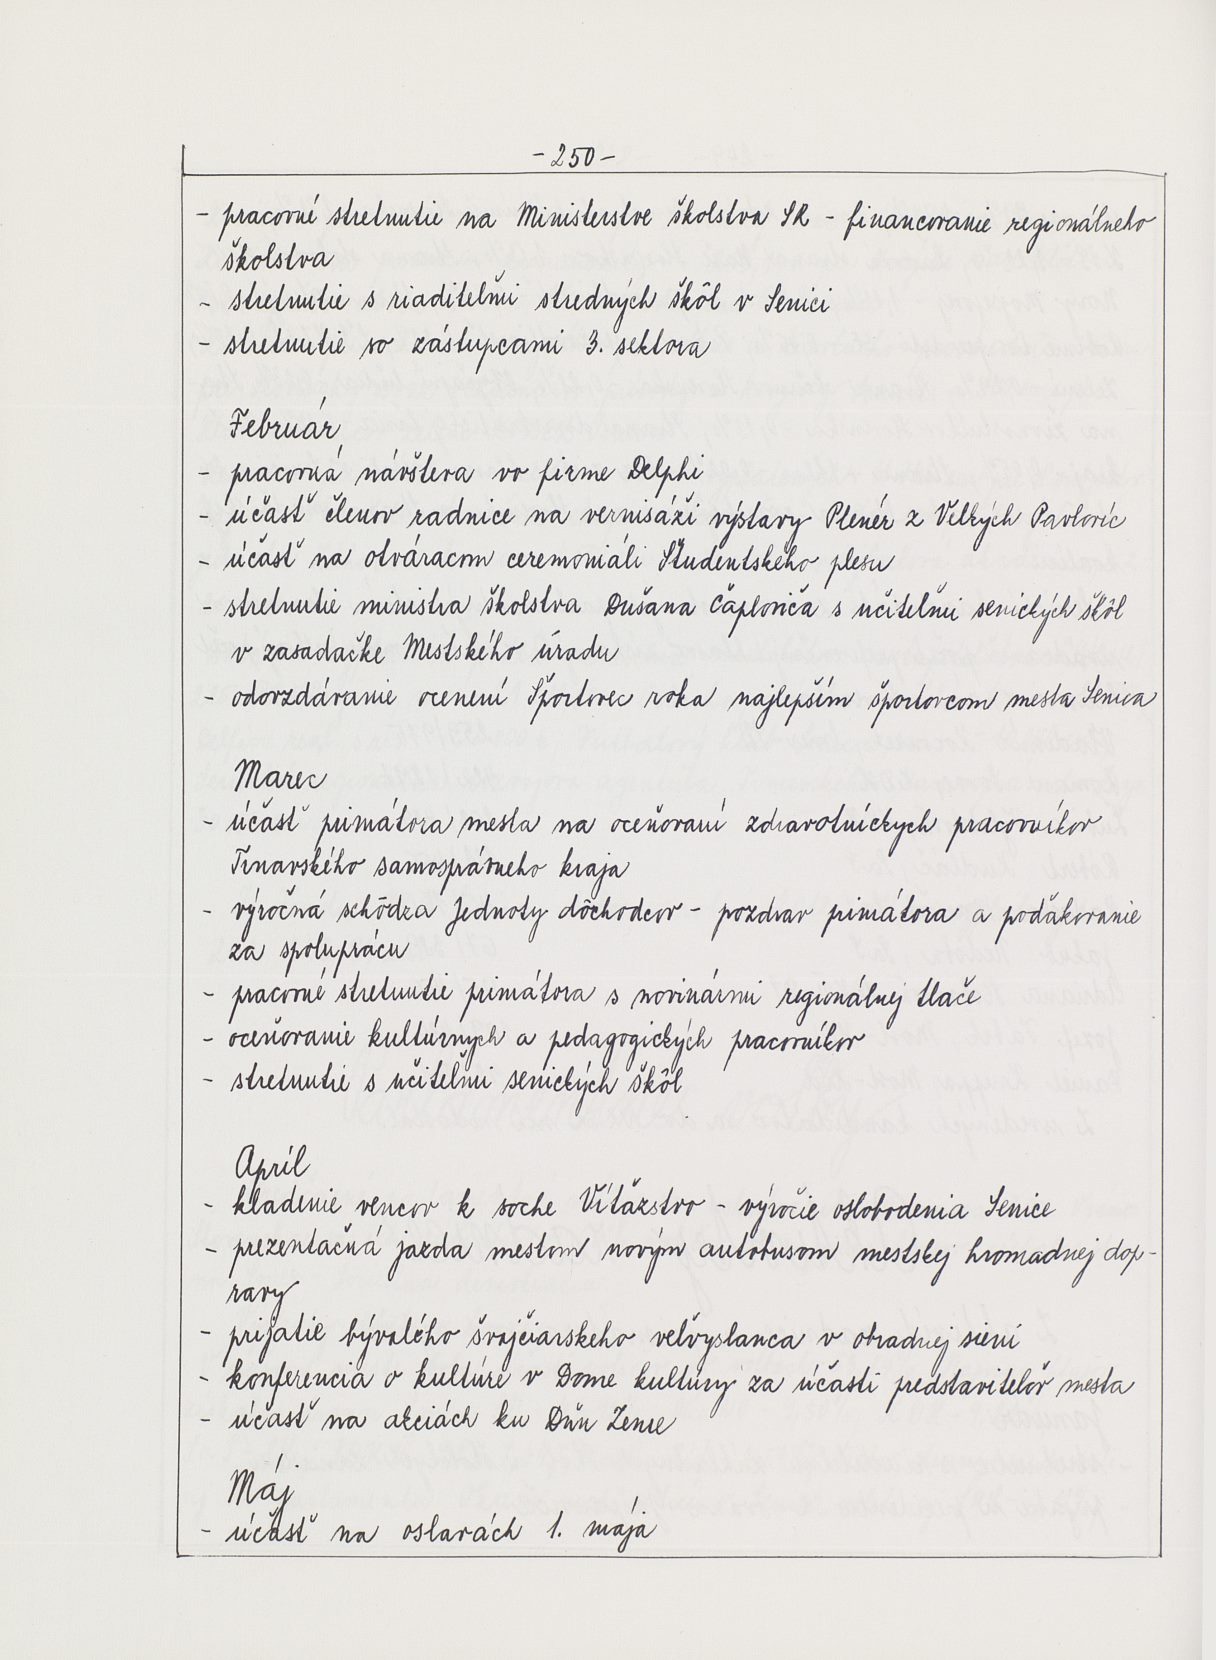 - 250 -
- pracovné stretnutie na Ministerstve školstva SR - financovanie regionálneho
školstva
- stretnutie s riaditeľmi stredných škôl v Senici
- stretnutie so zástupcami 3. sektora
Február
- pracovná návšteva vo firme Delphi
- účasť členov radnice na vernisáži výstavy Plenér z Veľkých Pavlovíc
- účasť na otváracom ceremoniáli Študentského plesu
- stretnutie ministra školstva Dušana Čaploviča s učiteľmi senických škôl
v zasadačke Mestského úradu
- odovzdávanie ocenení Športovec roka najlepším športovcom mesta Senica
Marec
- účasť primátora mesta na oceňovaní zdravotníckych pracovníkov
Trnavského samosprávneho kraja
- výročná schôdza Jednoty dôchodcov - pozdrav primátora a poďakovanie
za spoluprácu
- pracovné stretnutie primátora s novinármi regionálnej tlače
- oceňovanie kultúrnych a pedagogických pracovníkov
- stretnutie s učiteľmi senických škôl
Apríl
- kladenie vencov k soche Víťazstvo - výročie oslobodenia Senice
- prezentačná jazda mestom novým autobusom mestskej hromadnej dop-
ravy
- prijatie bývalého švajčiarskeho veľvyslanca v obradnej sieni
- konferencia o kultúre v Dome kultúry za účasti predstaviteľov mesta
- účasť na akciách ku Dňu Zeme
Máj
- účasť na oslavách 1. mája